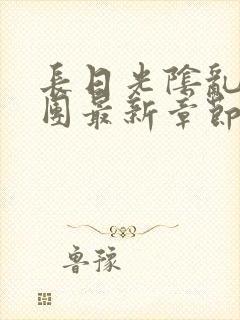 長日光陰亂
團最新章節
魯豫